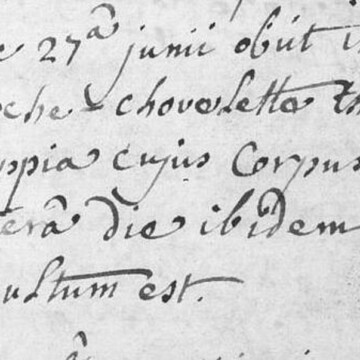 e 27â junii obiit i
che - chovelette th
ppia cujus Corpus
terâ die ibidem
ultum est.